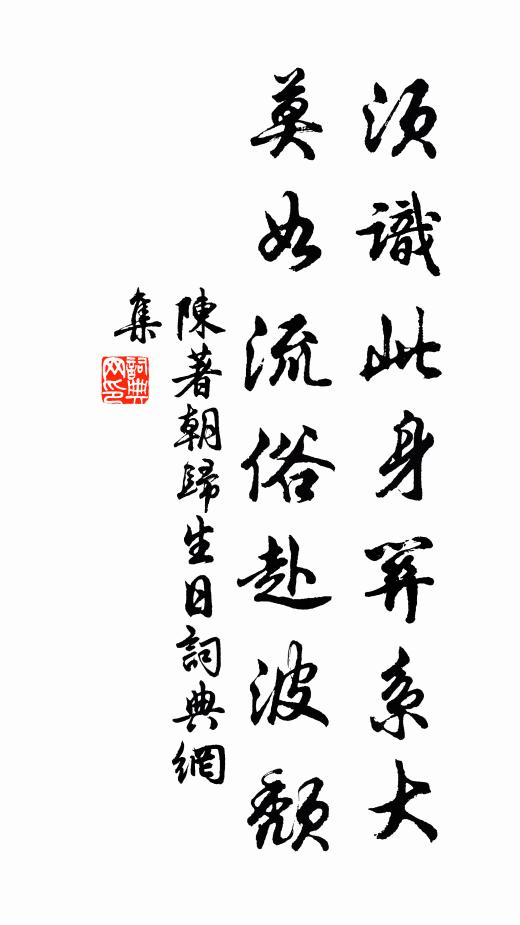 須識此身關系大
莫如流俗赴波頹
陳著朝歸生日詞典網
集
詞典
网印